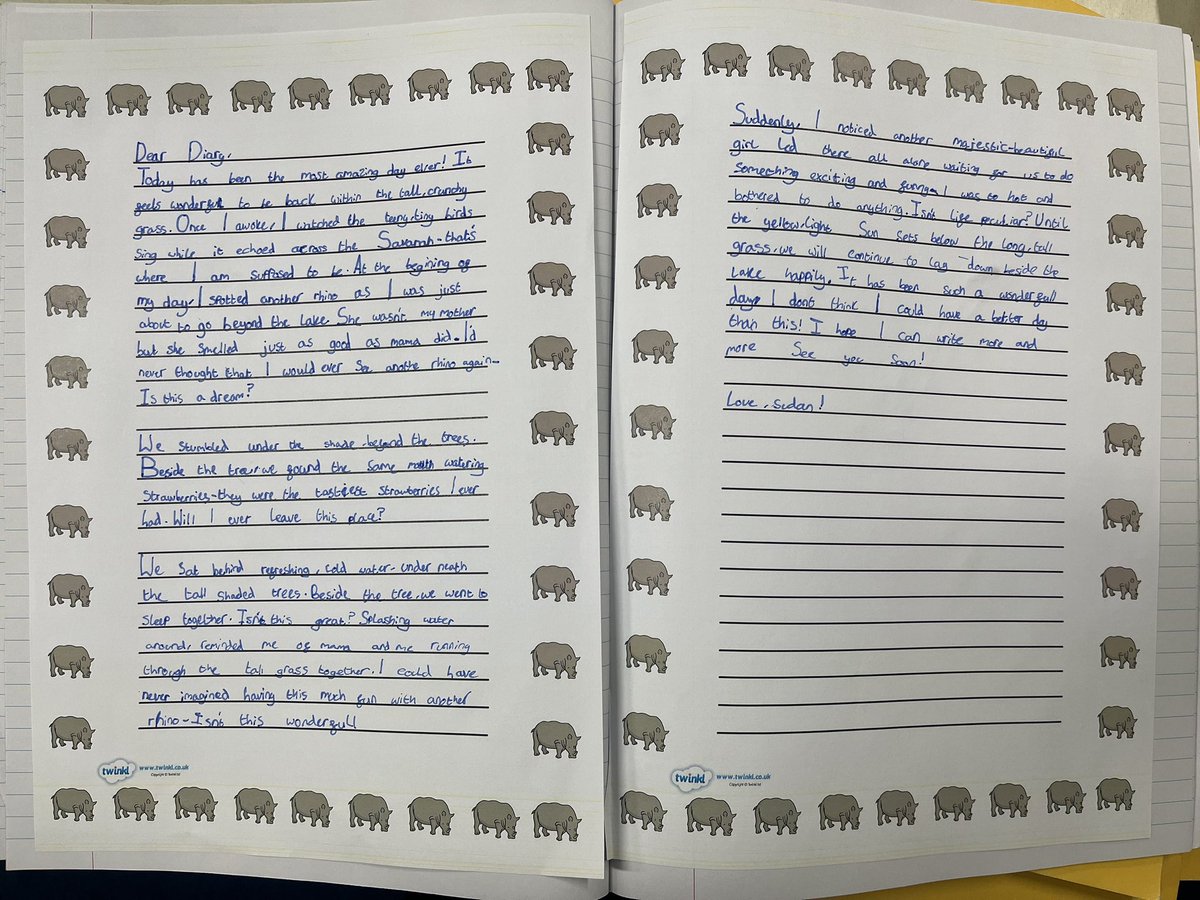 Dear Diary,
Today has been the most amazing day elver! It
feels wonderful to be back within the tall, crunchy
grass. Once I awoke, I watched the teny, ting birds
Sing while it echoed across the Savanah-that's
where I am suppsed to be. At the begining of
my day, I spotted another rhino as I was just
about to go beyond the lake. She wasn't my mother
but she smelled just as good as mama did. I'd
never thought that I would ever See anothe rhino again-
Is this a dream?
We stumbled under the shade-beyond the trees.
Beside the trees, we found the same mouth watering
Strawberries-they were the tastiest strawberries I ever
had. Will I ever leave this place?
We Sat behind refreshing, cold water-under neath
the tall shaded trees. Beside the tree, we went to
sleep together. Isn't this great? Splashing water
around, reminded me of mama and me running
through the tall grass together. I could have
never imagined having this much fun with another
rhino-Isn't this wonderfull
twinkl
www.twinkl.co.uk
Copyright © Twinkl Ltd
Suddenly, I noticed another majestic-beautiful
girl Led there all alone waiting for us to do
Something exciting and I was to hot and
bothered to do anything. Isn't life peculiar? Until
the yellow, light Sun sets below the long, tall
grass, we will continue to lay down beside the
Lake happily. It has been such a wonderfull
day, I don't think I could have a better day
than this! I hope I can write more and
more See you Soon!
Love, sudan!
twinkl
www.twinkl.co.uk
Copyright © Twinkl Ltd